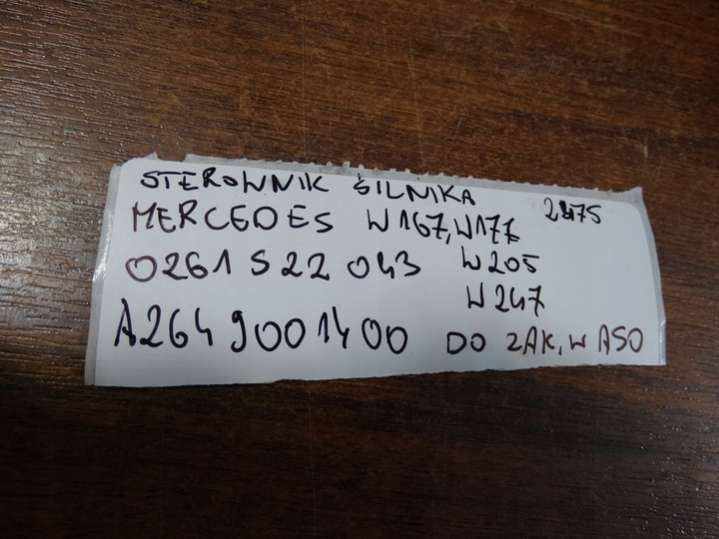 STEROWNIK SILNIKA
MERCEDES W167, W177 2475
0261S22043 W205
W247
A2649001400 DO ZAK, W ASO